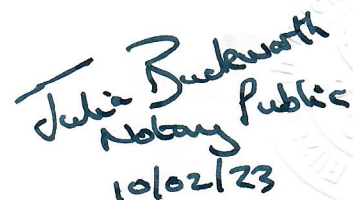 Julia Buckworth
Notary Public
10/02/23